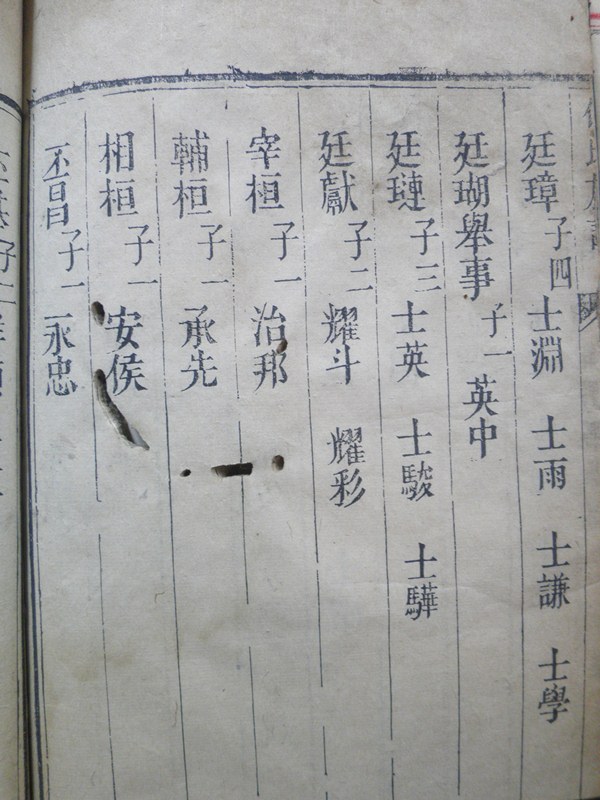 廷璋子四士淵 士雨 士謙 士學
廷瑚舉事子一英中
廷璉子三士英 士駿 士驊
廷獻子二耀斗 耀彩
宰桓子一治邦
輔桓子一承先
相桓子一安侯
丕昌子一永忠